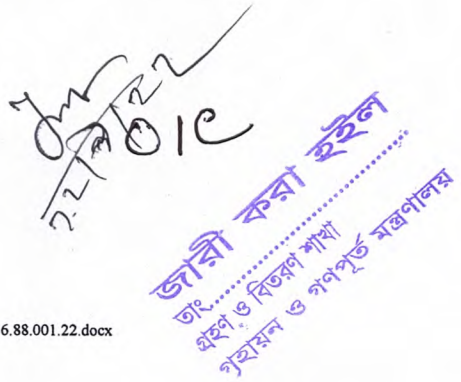 O/C
জারী করা হইল
তাং
গ্রহণ ও বিতরণ শাখা
গৃহায়ন ও গণপূর্ত মন্ত্রণালয়
6.88.001.22.docx